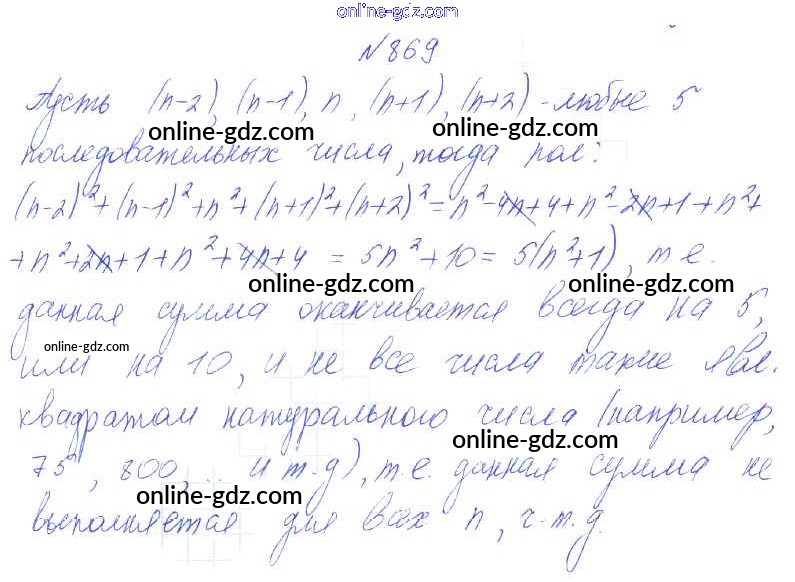 online-gdz.com
№869
Пусть (n-2), (n-1), n, (n+1), (n+2) - любые 5
online-gdz.com online-gdz.com
последовательных числа, тогда пол:
(n-2)²+(n-1)²+n²+(n+1)²+(n+2)²=n²-4n+4+n²-2n+1+n²+
+n²+2n+1+n²+4n+4 = 5n²+10= 5(n²+1), т.е.
online-gdz.com online-gdz.com
данная сумма оканчивается всегда на 5,
online-gdz.com
или на 10, и не все числа такие явл.
квадратом натурального числа (например,
online-gdz.com
75, 800, .. и т.д), т.е. данная сумма не
online-gdz.com
выполняется для всех n, ч.т.д.
online-gdz.com